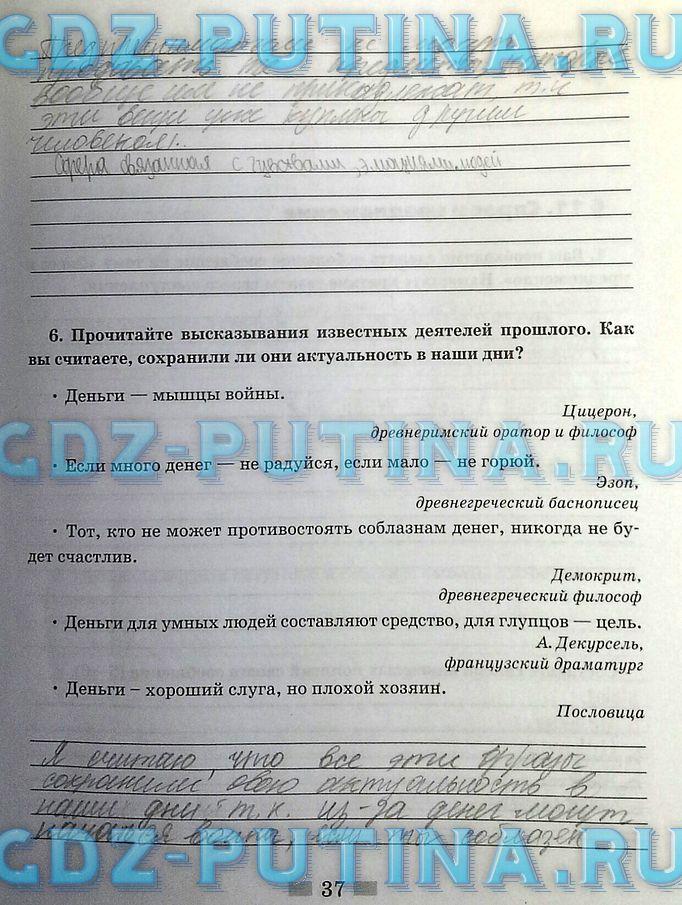 GDZ-PUTINA.RU
не
продавать
вообще им не принадлежат т.к
эти вещи уже куплены другим
человеком.
Сфера связанная с чувствами, эмоциями людей
6. Прочитайте высказывания известных деятелей прошлого. Как
вы считаете, сохранили ли они актуальность в наши дни?
• Деньги — мышцы войны.
Цицерон,
древнеримский оратор и философ
GDZ-PUTINA.RU
• Если много денег — не радуйся, если мало — не горюй.
Эзоп,
древнегреческий баснописец
• Тот, кто не может противостоять соблазнам денег, никогда не бу-
дет счастлив.
Демокрит,
древнегреческий философ
• Деньги для умных людей составляют средство, для глупцов — цель.
А. Декурсель,
французский драматург
• Деньги – хороший слуга, но плохой хозяин.
Пословица
Я считаю что все эти фразы
сохранили свою актуальность в
наши дни т.к. из-за денег могут
начаться война, если ты соблазен
GDZ-PUTINA.RU
37